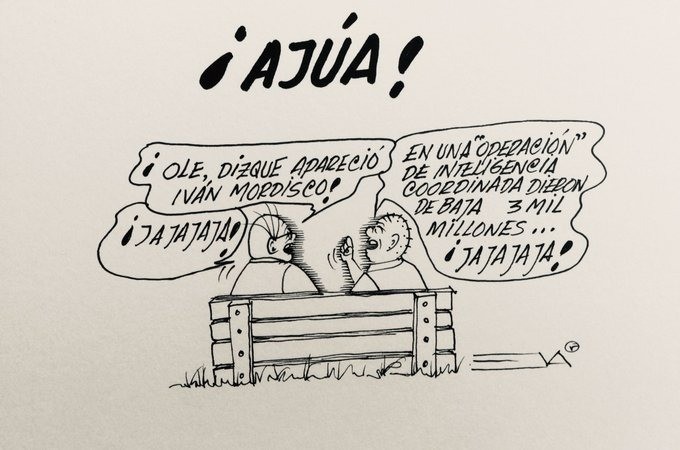 ¡AJÚA!
¡OLE, DIZQUE APARECIÓ
IVÁN MORDISCO!
¡JAJAJAJA!
EN UNA "OPERACIÓN"
DE INTELIGENCIA
COORDINADA DIERON
DE BAJA 3 MIL
MILLONES...
¡JAJAJAJA!